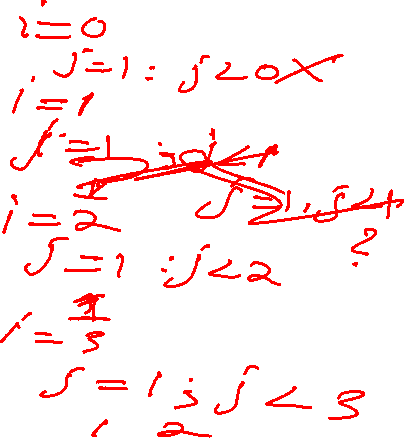 i=0
j=1: j<0
i=1
j=1
j=1, j<1
i=2
?
j=1 :j<2
i=3
j=1; j<3
1 2